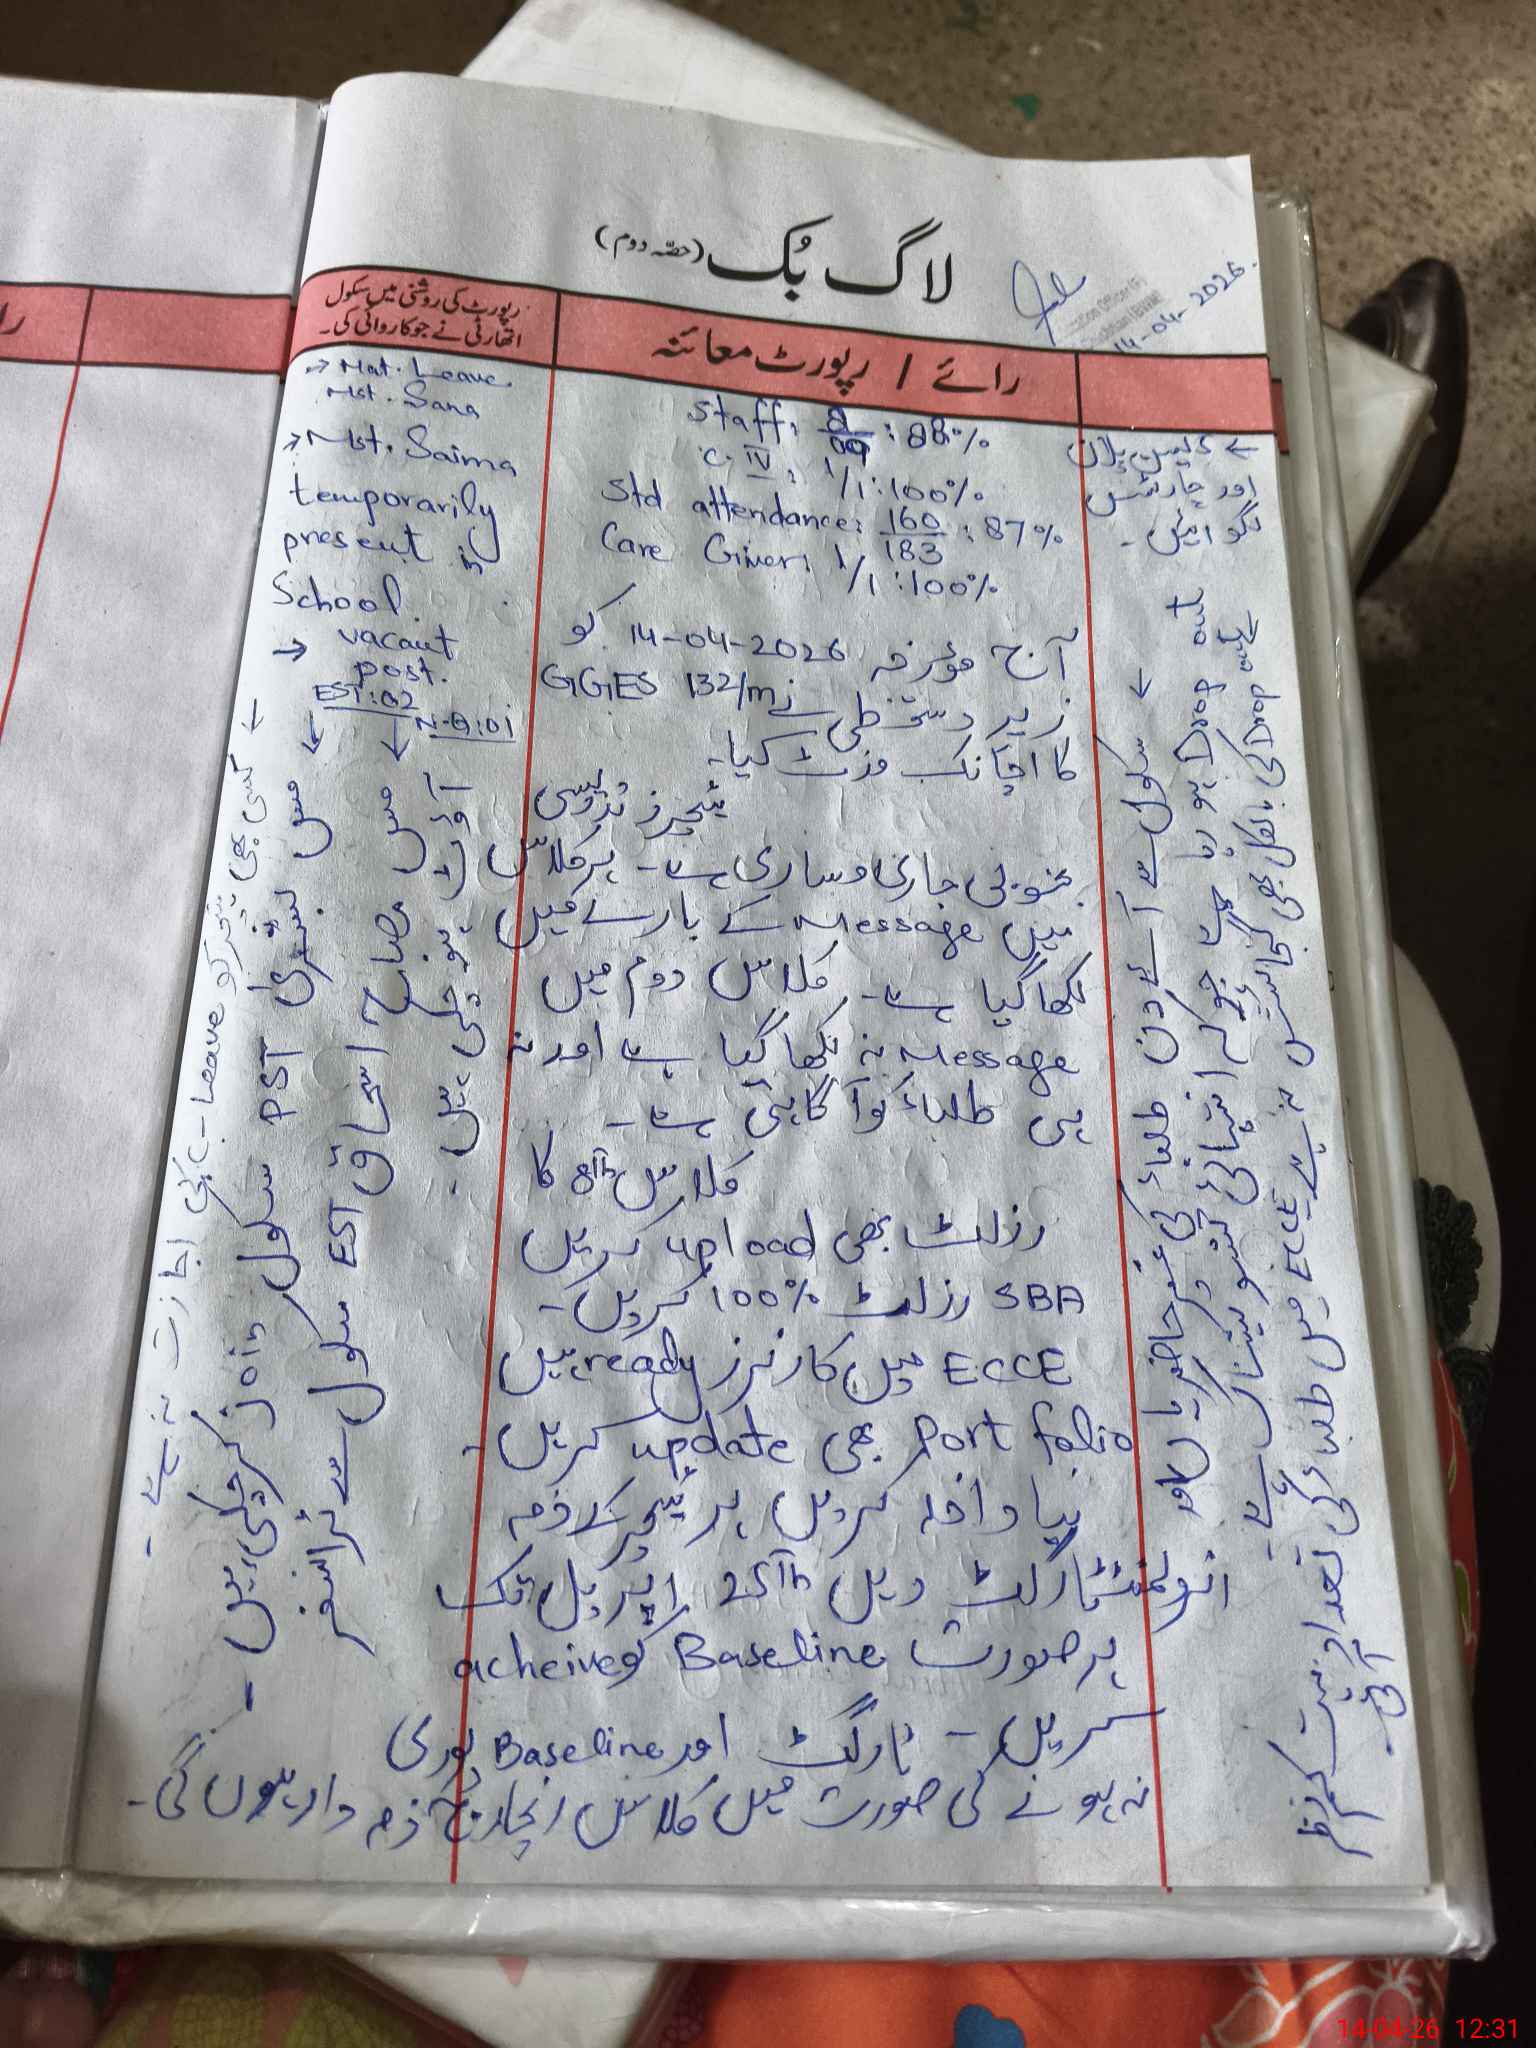 لاگ بُک (حصّہ دوم)
14-04-2026.
رائے / رپورٹ معائنہ
رپورٹ کی روشنی میں سکول
اتھارٹی نے جو کاروائی کی۔
Staff: 8/09 : 88%
C.IV: 1/1:100%
Std attendance: 160/183 : 87%
Care Giver: 1/1:100%
آج مؤرخہ 14-04-2026 کو
زیر دستخطی نے GGES 132/m
کا اچانک وزٹ کیا۔
ٹیچرز تدریسی
بخوبی جاری و ساری ہے۔ ہر کلاس
میں Message کے بارے میں
لکھا گیا ہے۔ کلاس دوم میں
Message نہ لکھا گیا ہے اور نہ
ہی طلباء کو آگاہی ہے۔
کلاس 8th کا
رزلٹ بھی upload کریں
SBA رزلٹ 100% کریں۔
ECCE میں کارنرز ready ہیں
Port folio بھی update کریں۔
نیا داخلہ کریں ہر ٹیچر کے ذمہ
انرولمنٹ ٹارگٹ دیں 25th اپریل تک
ہر صورت Baseline کو acheive
کریں۔ ٹارگٹ اور Baseline پوری
نہ ہونے کی صورت میں کلاس انچارج ذمہ دار ہوں گی۔
→ Mat. Leave
Mst. Sana
→ Mst. Saima
temporarily
present in
School.
→ vacant
post.
EST:02
N-Q:01
→ مس بشریٰ PST سکول join کر چکی ہیں۔
→ مس مصباح اسحاق EST سکول سے ٹرانسفر
آؤٹ ہو چکی ہیں۔
→ کسی بھی ٹیچر کو C-Leave کی اجازت نہ ہے۔
← لیسن پلان
اور چارٹس
لگوائیں۔
→ سکول سے آئے دن طلباء کی غیر حاضریاں اور
Drop out ہو رہا ہے جو کہ انتہائی تشویشناک ہے۔
Drop out کی بالکل بھی گنجائش نہ ہے۔ ECCE میں طلباء کی تعداد بہت کم نظر
آئی۔
14-04-26 12:31